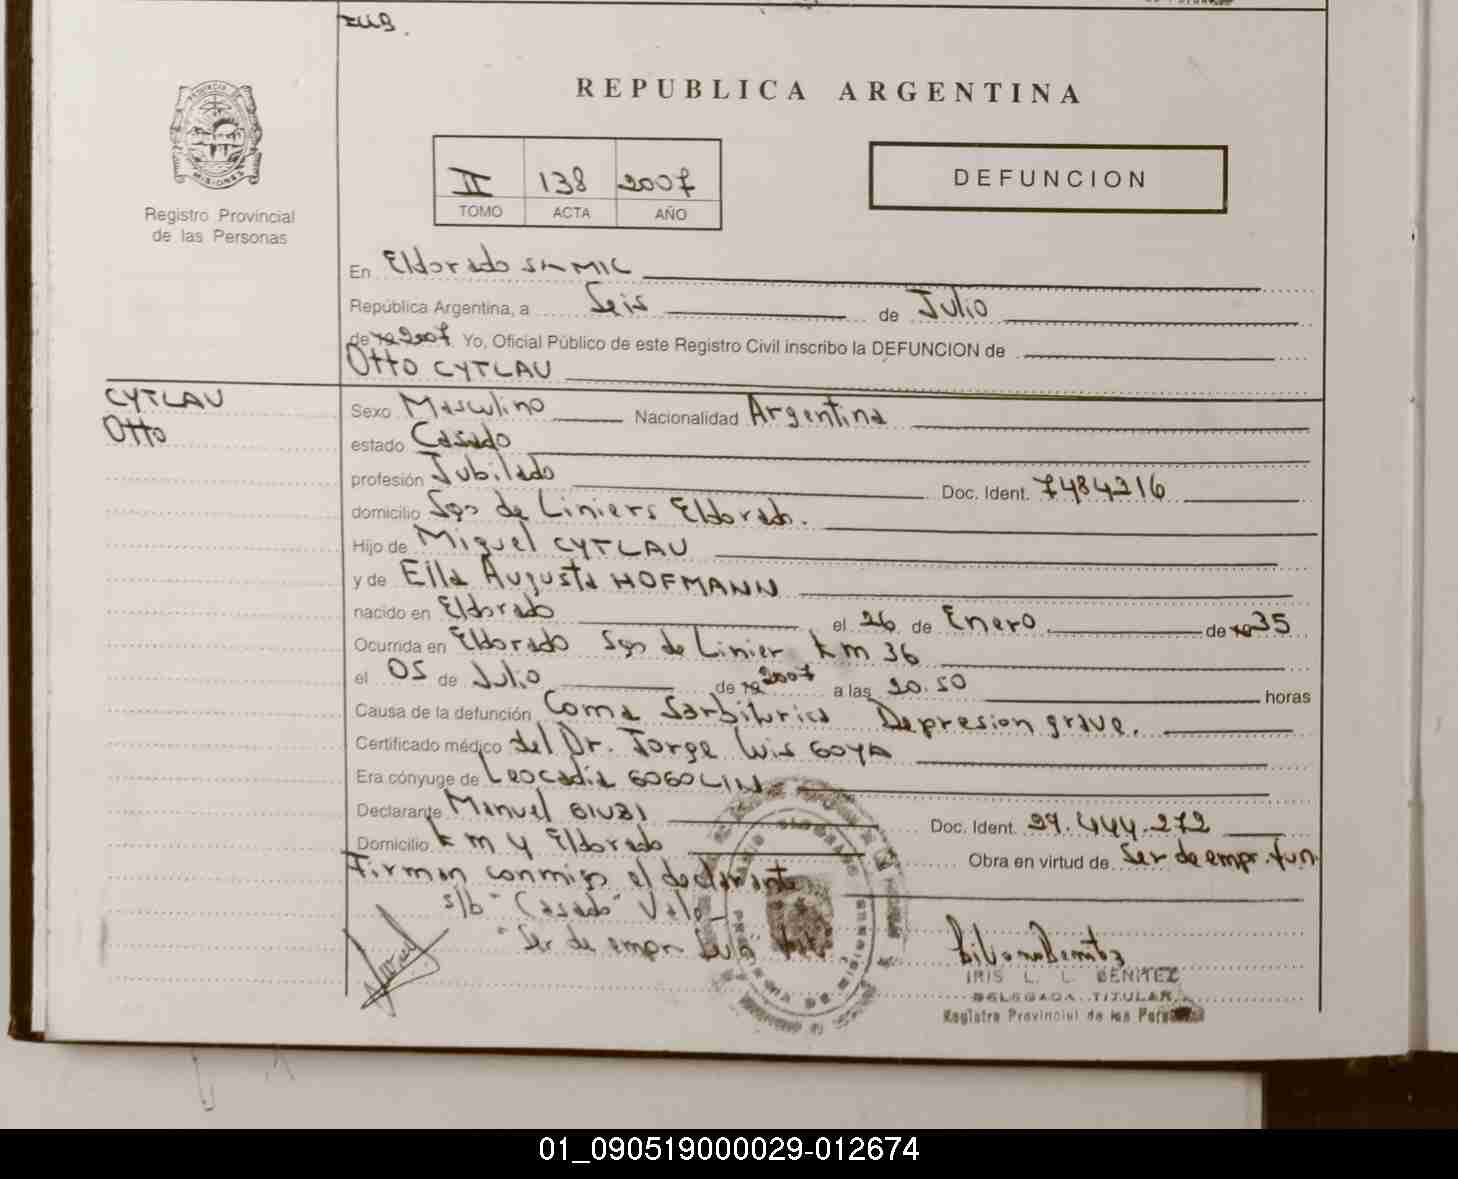 REPUBLICA ARGENTINA
PROVINCIA DE
MISIONES
Registro Provincial
de las Personas
II 138 2007
TOMO ACTA AÑO
DEFUNCION
En Eldorado
República Argentina, a Seis de Julio
de 19 2007 Yo, Oficial Público de este Registro Civil inscribo la DEFUNCION de
Otto CYTLAU
CYTLAU
Otto
Sexo Masculino Nacionalidad Argentina
estado Casado
profesión Jubilado Doc. Ident. 7484216
domicilio Sgo de Liniers Eldorado.
Hijo de Miguel CYTLAU
y de Ella Augusta HOFMANN
nacido en Eldorado el 26 de Enero de 19 35
Ocurrida en Eldorado Sgo de Linier km 36
el 05 de Julio de 19 2007 a las 20.50 horas
Causa de la defunción Coma Barbiturico Depresion grave.
Certificado médico del Dr. Jorge Luis GOYA
Era cónyuge de Leocadia GOGOLIN
Declarante Manuel GIUBI Doc. Ident. 29.444.272
Domicilio km 4 Eldorado Obra en virtud de Ser de empr. fun.
Firman conmigo el declarante
s/b "Casado" Vale
"Ser de empr
IRIS L. L. BENITEZ
DELEGADA TITULAR
Registro Provincial de las Personas
01_090519000029-012674